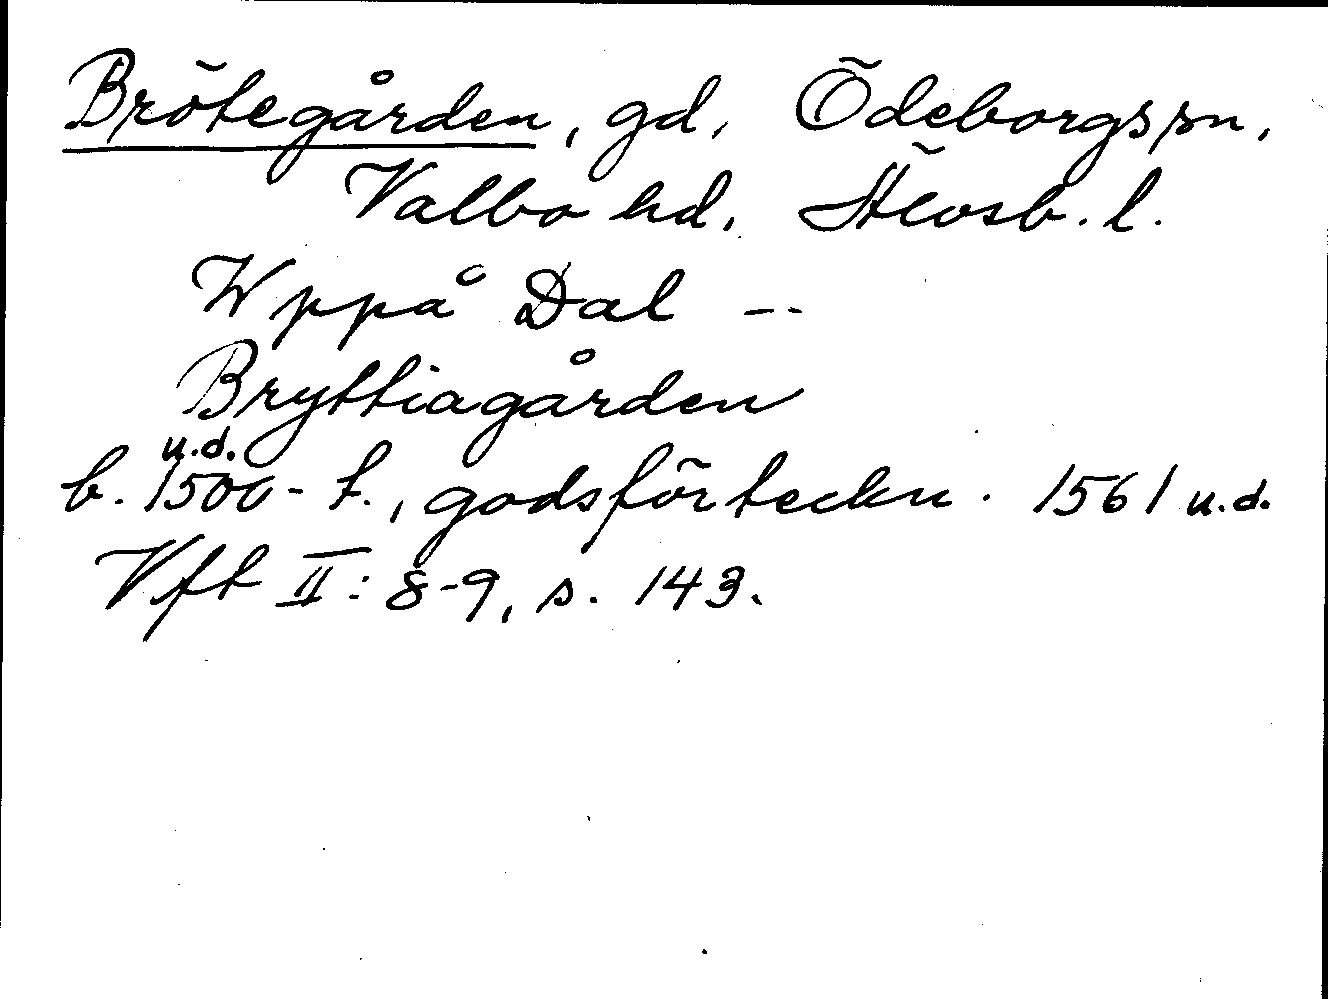 Brötegården, gd, Ödeborgs sn,
Valbo hd, Älvsb. l.
Wppå Dal --
Bryttiagården
u.d.
b. 1500-t., godsförteckn. 1561 u.d.
Vft II: 8-9, s. 143.